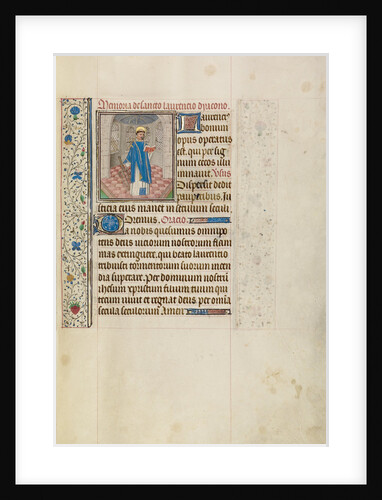 Memoria de sancto laurencio dyacono.
Laurenci
bonum
opus operatus
est. qui per sig
num crucis cecos illu
minavit. Versus
Dispersit dedit
pauperibus. Ju
sticia eius manet in seculum seculi.
Oremus. Oracio.
Da nobis quesumus omnipo
tens deus viciorum nostrorum flam
mas extinguere. qui beato laurentio
tribuisti tormentorum suorum incen
dia superare. Per dominum nostrum
ihesum xpristum filium tuum qui
tecum vivit et regnat deus per omnia
secula seculorum Amen